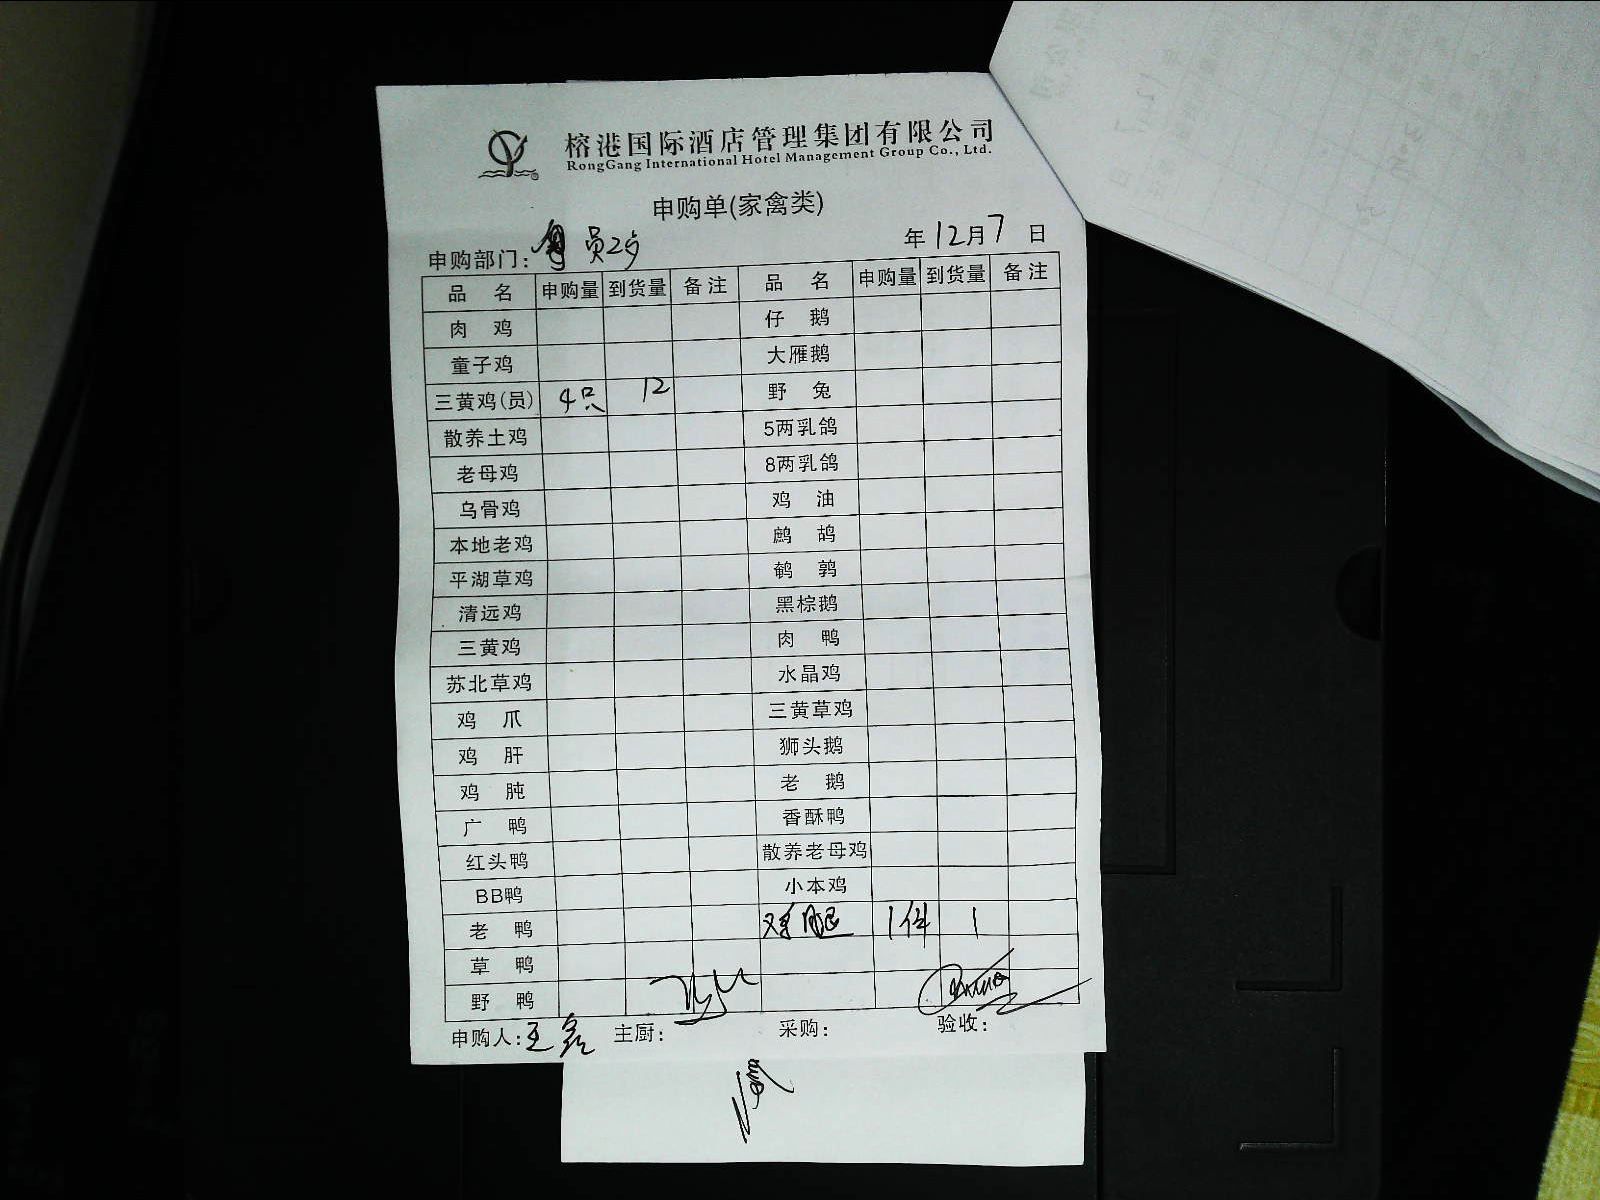 榕港国际酒店管理集团有限公司
RongGang International Hotel Management Group Co., Ltd.
申购单(家禽类)
申购部门: 员 年12月7日
品名 申购量 到货量 备注 品名 申购量 到货量 备注
肉鸡 仔鹅
童子鸡 大雁鹅
三黄鸡(员) 4只 12 野兔
散养土鸡 5两乳鸽
老母鸡 8两乳鸽
乌骨鸡 鸡油
本地老鸡 鹧鸪
平湖草鸡 鹌鹑
清远鸡 黑棕鹅
三黄鸡 肉鸭
苏北草鸡 水晶鸡
鸡爪 三黄草鸡
鸡肝 狮头鹅
鸡肫 老鹅
广鸭 香酥鸭
红头鸭 散养老母鸡
BB鸭 小本鸡
老鸭 鸡腿 1件 1
草鸭
野鸭
申购人:王 主厨: 采购: 验收: